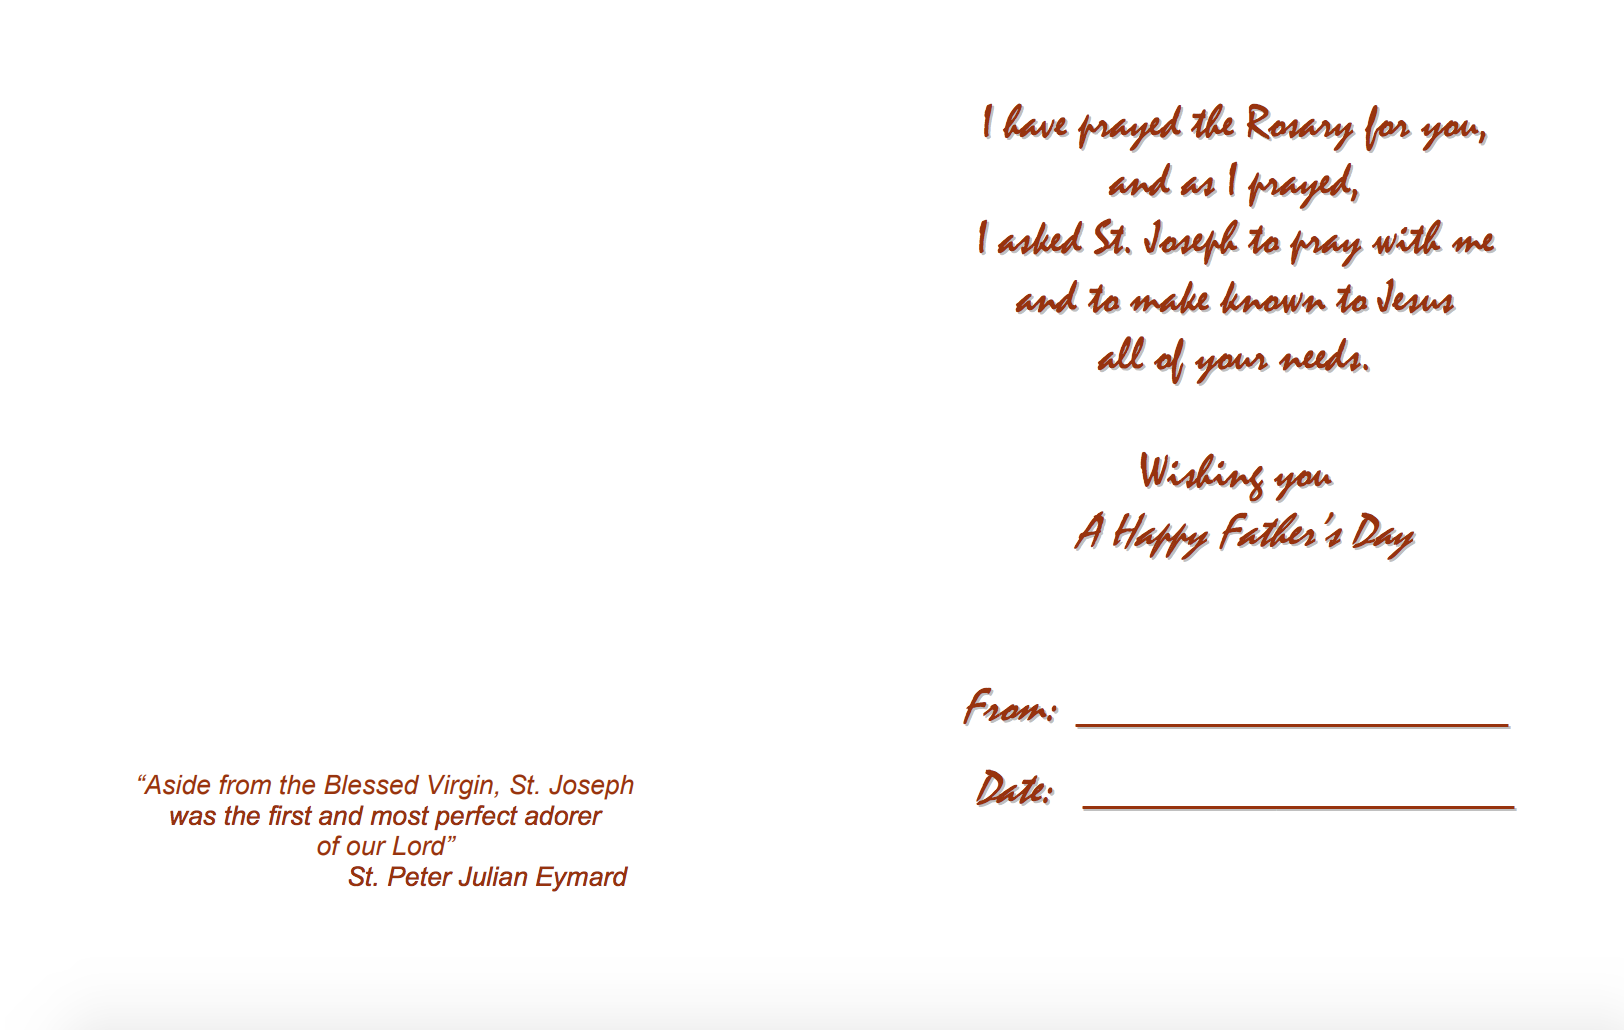 “Aside from the Blessed Virgin, St. Joseph
was the first and most perfect adorer
of our Lord”
St. Peter Julian Eymard
I have prayed the Rosary for you,
and as I prayed,
I asked St. Joseph to pray with me
and to make known to Jesus
all of your needs.
Wishing you
A Happy Father’s Day
From: ______________________
Date: ______________________